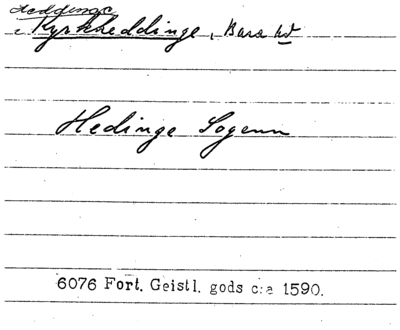 Heddinge
Kyrkheddinge, Bara hd
Hedinge Sogenn
6076 Fort. Geistl. gods c:a 1590.